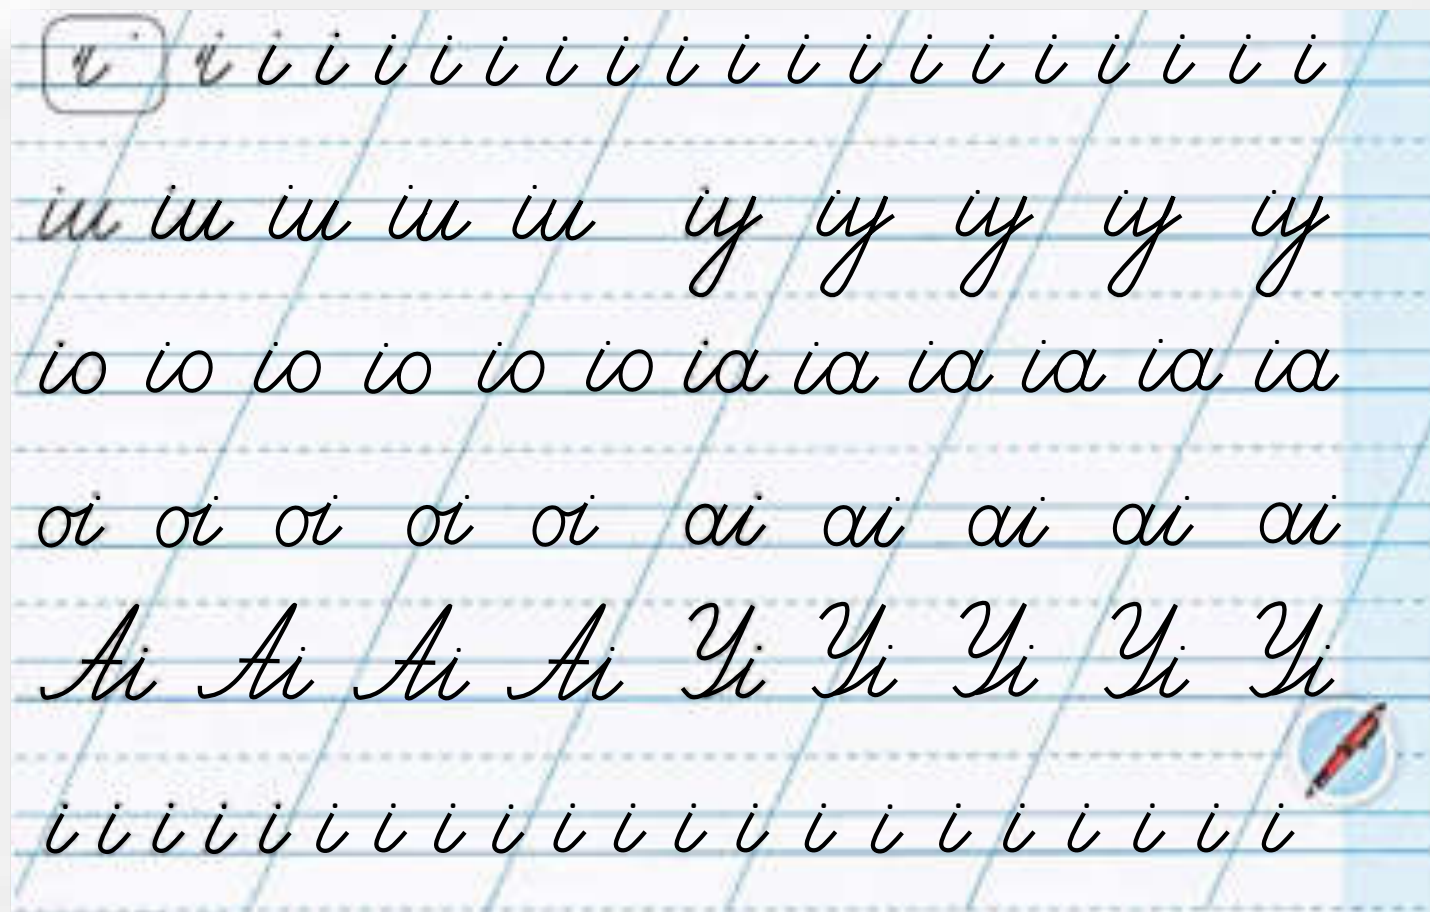 і і і і і і і і і і і і і і і і і і і і
іи іи іи іи іи іу іу іу іу іу
іо іо іо іо іо іо іа іа іа іа іа іа
оі оі оі оі оі аі аі аі аі аі
Аі Аі Аі Аі Уі Уі Уі Уі Уі
і і і і і і і і і і і і і і і і і і і і і